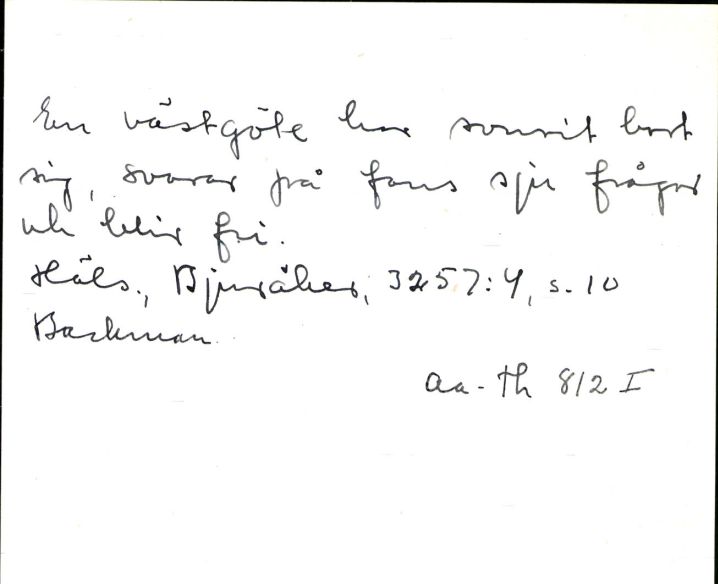 En västgöte har svurit bort
sig, svarar på fans sju frågor
och blir fri.
Häls., Bjuråker, 3257:4, s. 10
Backman
aa-th 812 I